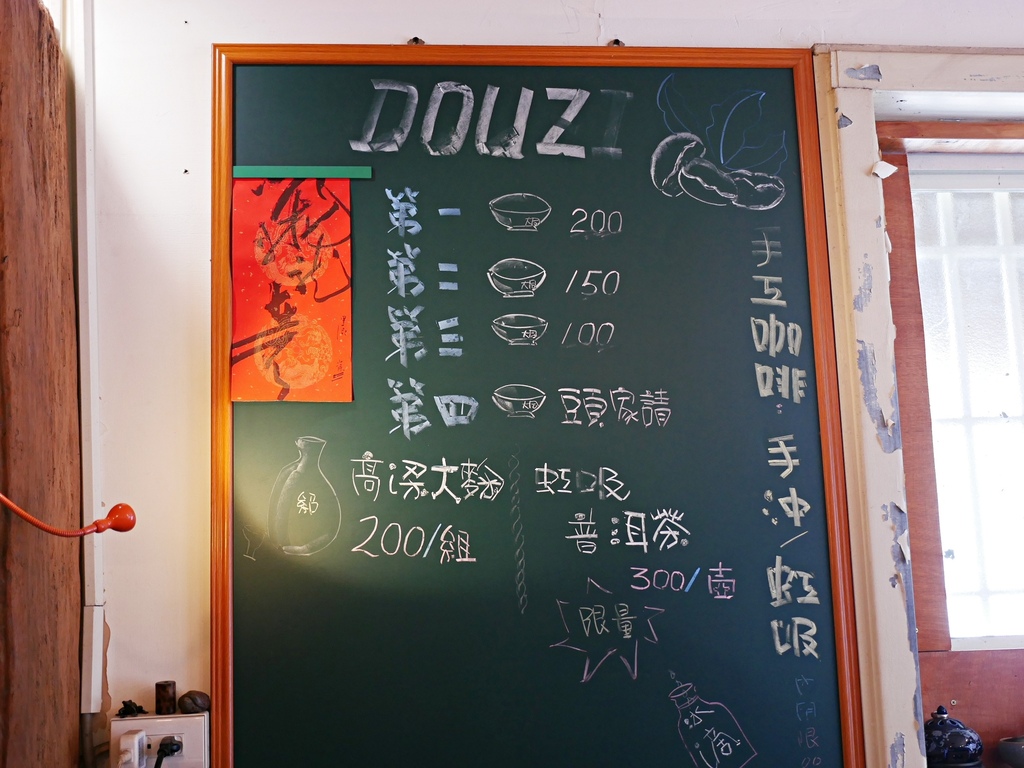 DOUZI
第一 大碗 200
第二 大碗 150
第三 大碗 100
第四 大碗 頭家請
高梁大麴
200/組
虹吸
普洱茶
300/壺
限量
手工咖啡: 手沖/虹吸
冰滴